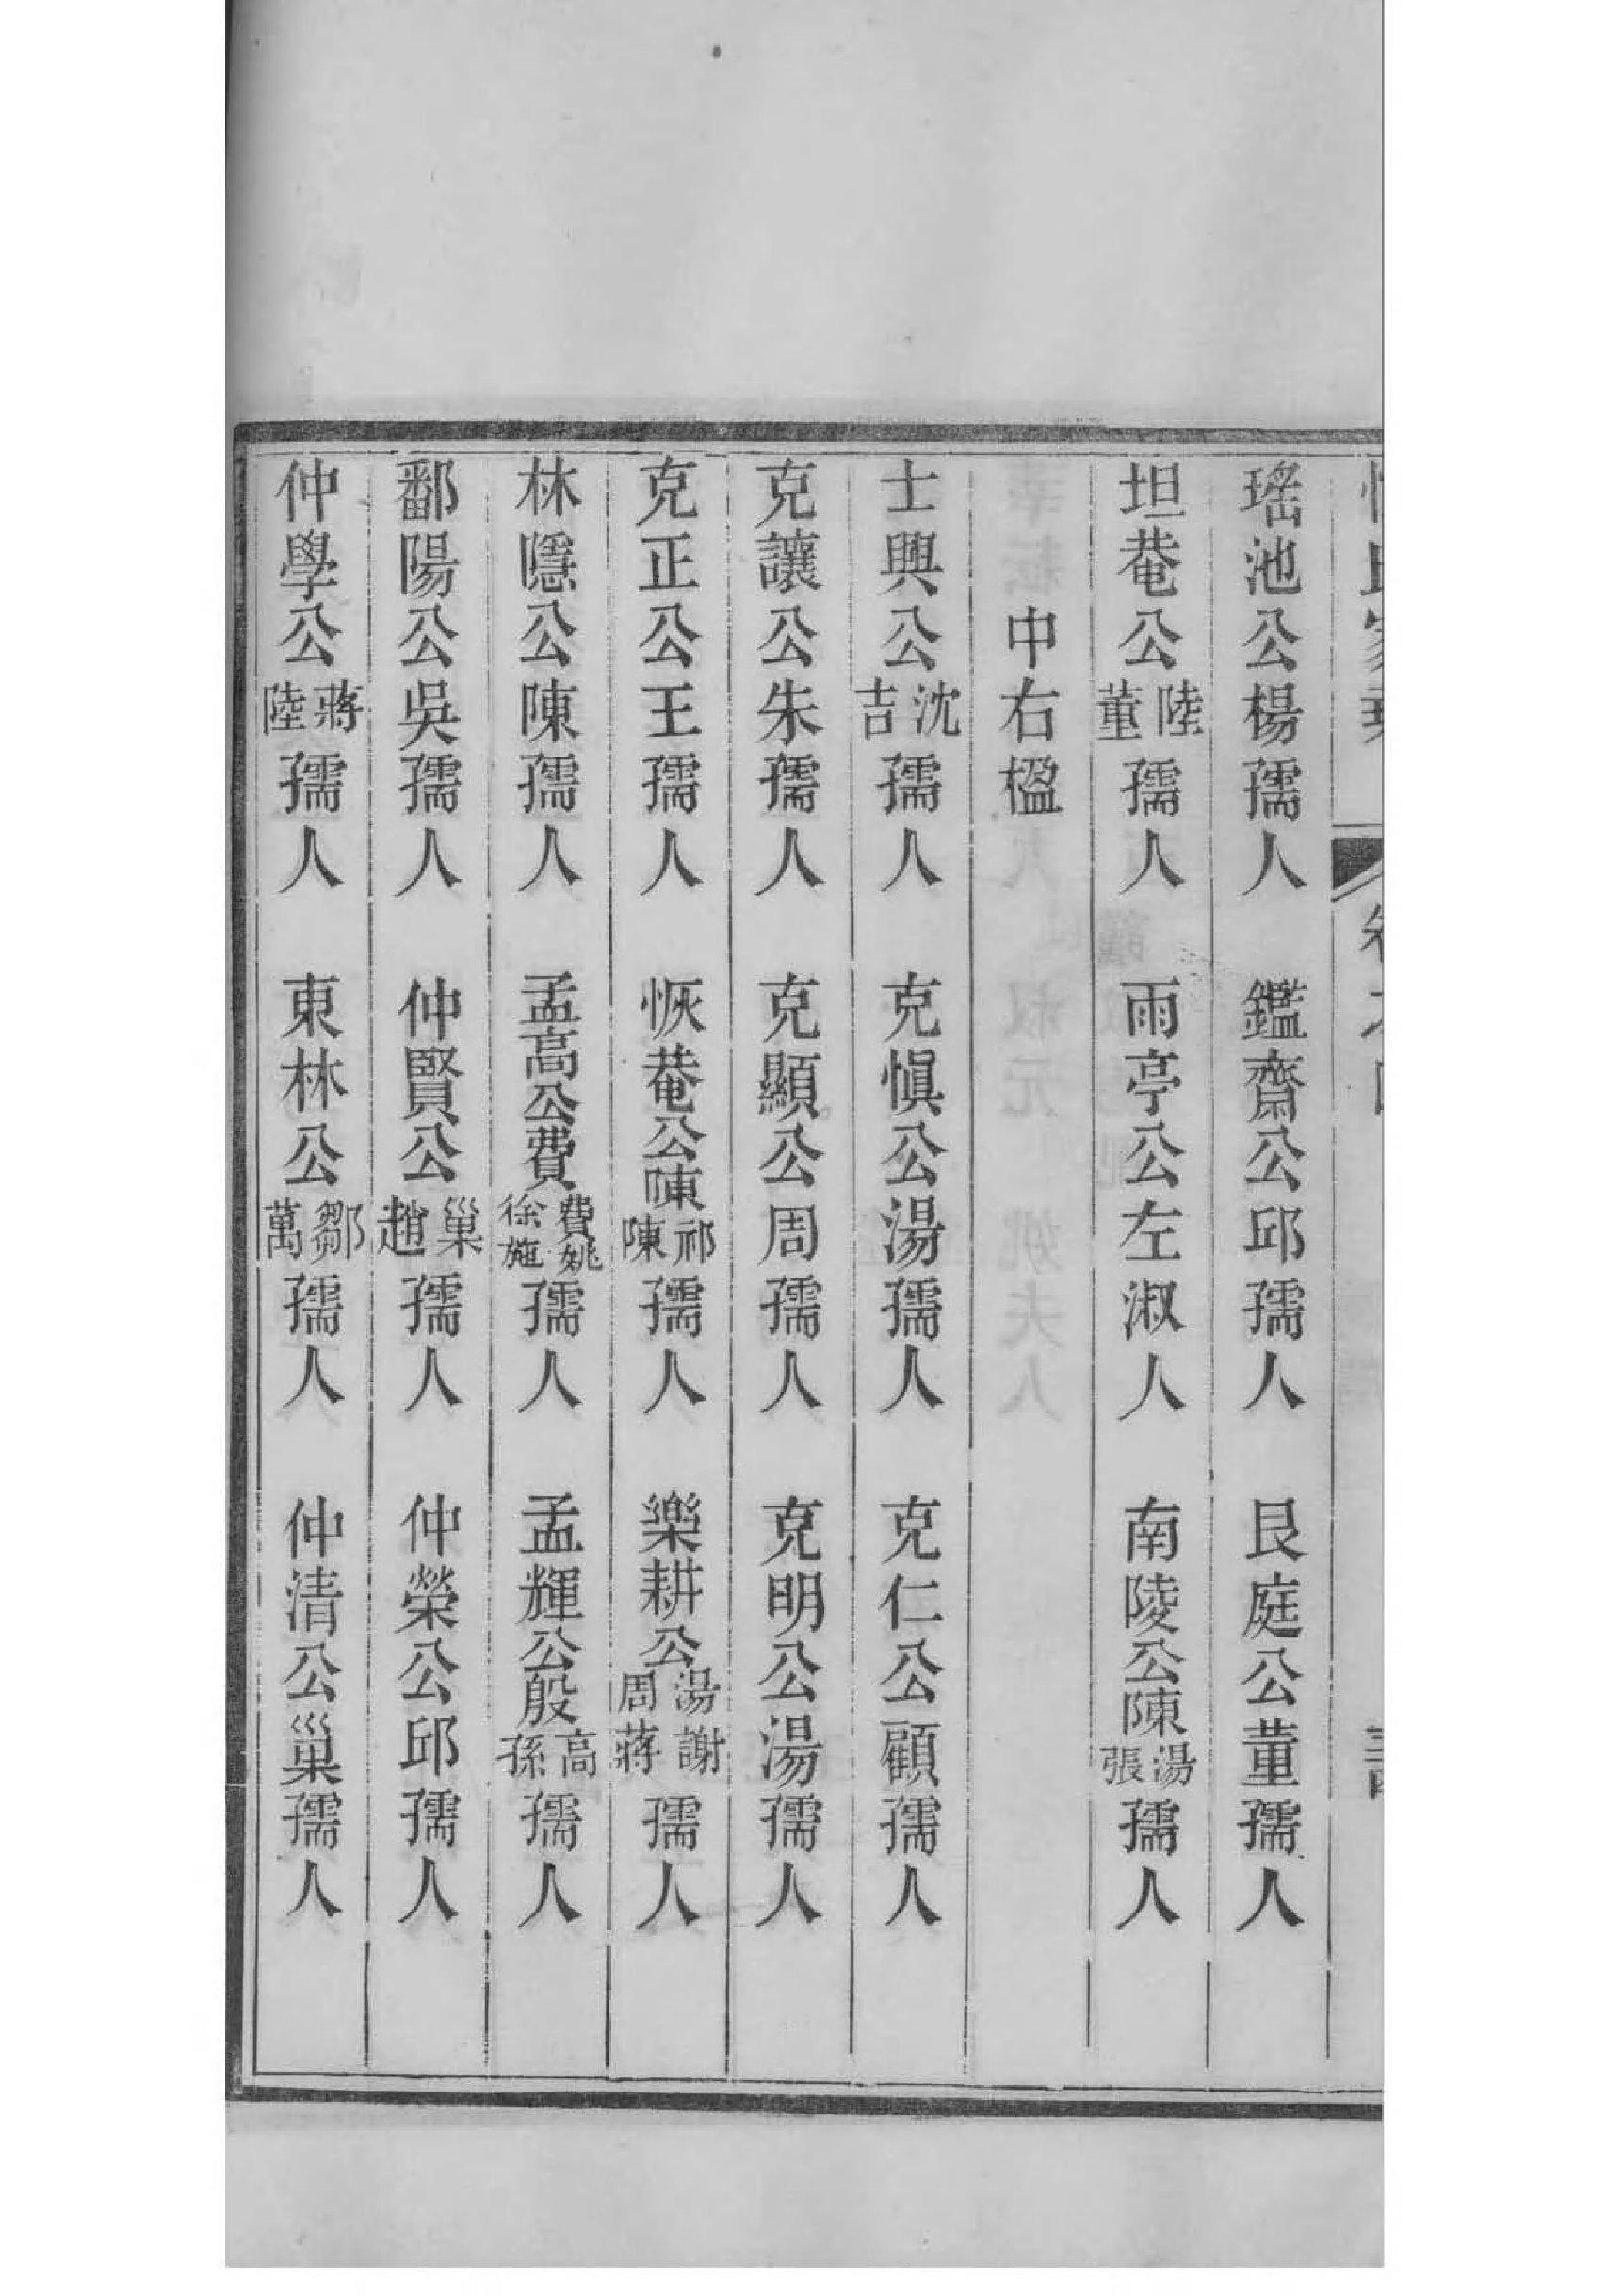 瑤池公楊孺人　鑑齋公邱孺人　艮庭公董孺人
坦菴公陸董孺人　雨亭公左淑人　南陵公陳湯張孺人
中右楹
士興公沈吉孺人　克愼公湯孺人　克仁公顧孺人
克讓公朱孺人　克顯公周孺人　克明公湯孺人
克正公王孺人　恢菴公陳祁陳孺人　樂耕公湯謝周蔣孺人
林隱公陳孺人　孟高公費費姚徐施孺人　孟輝公殷高孫孺人
鄱陽公吳孺人　仲賢公巢趙孺人　仲榮公邱孺人
仲學公蔣陸孺人　東林公鄒萬孺人　仲清公巢孺人